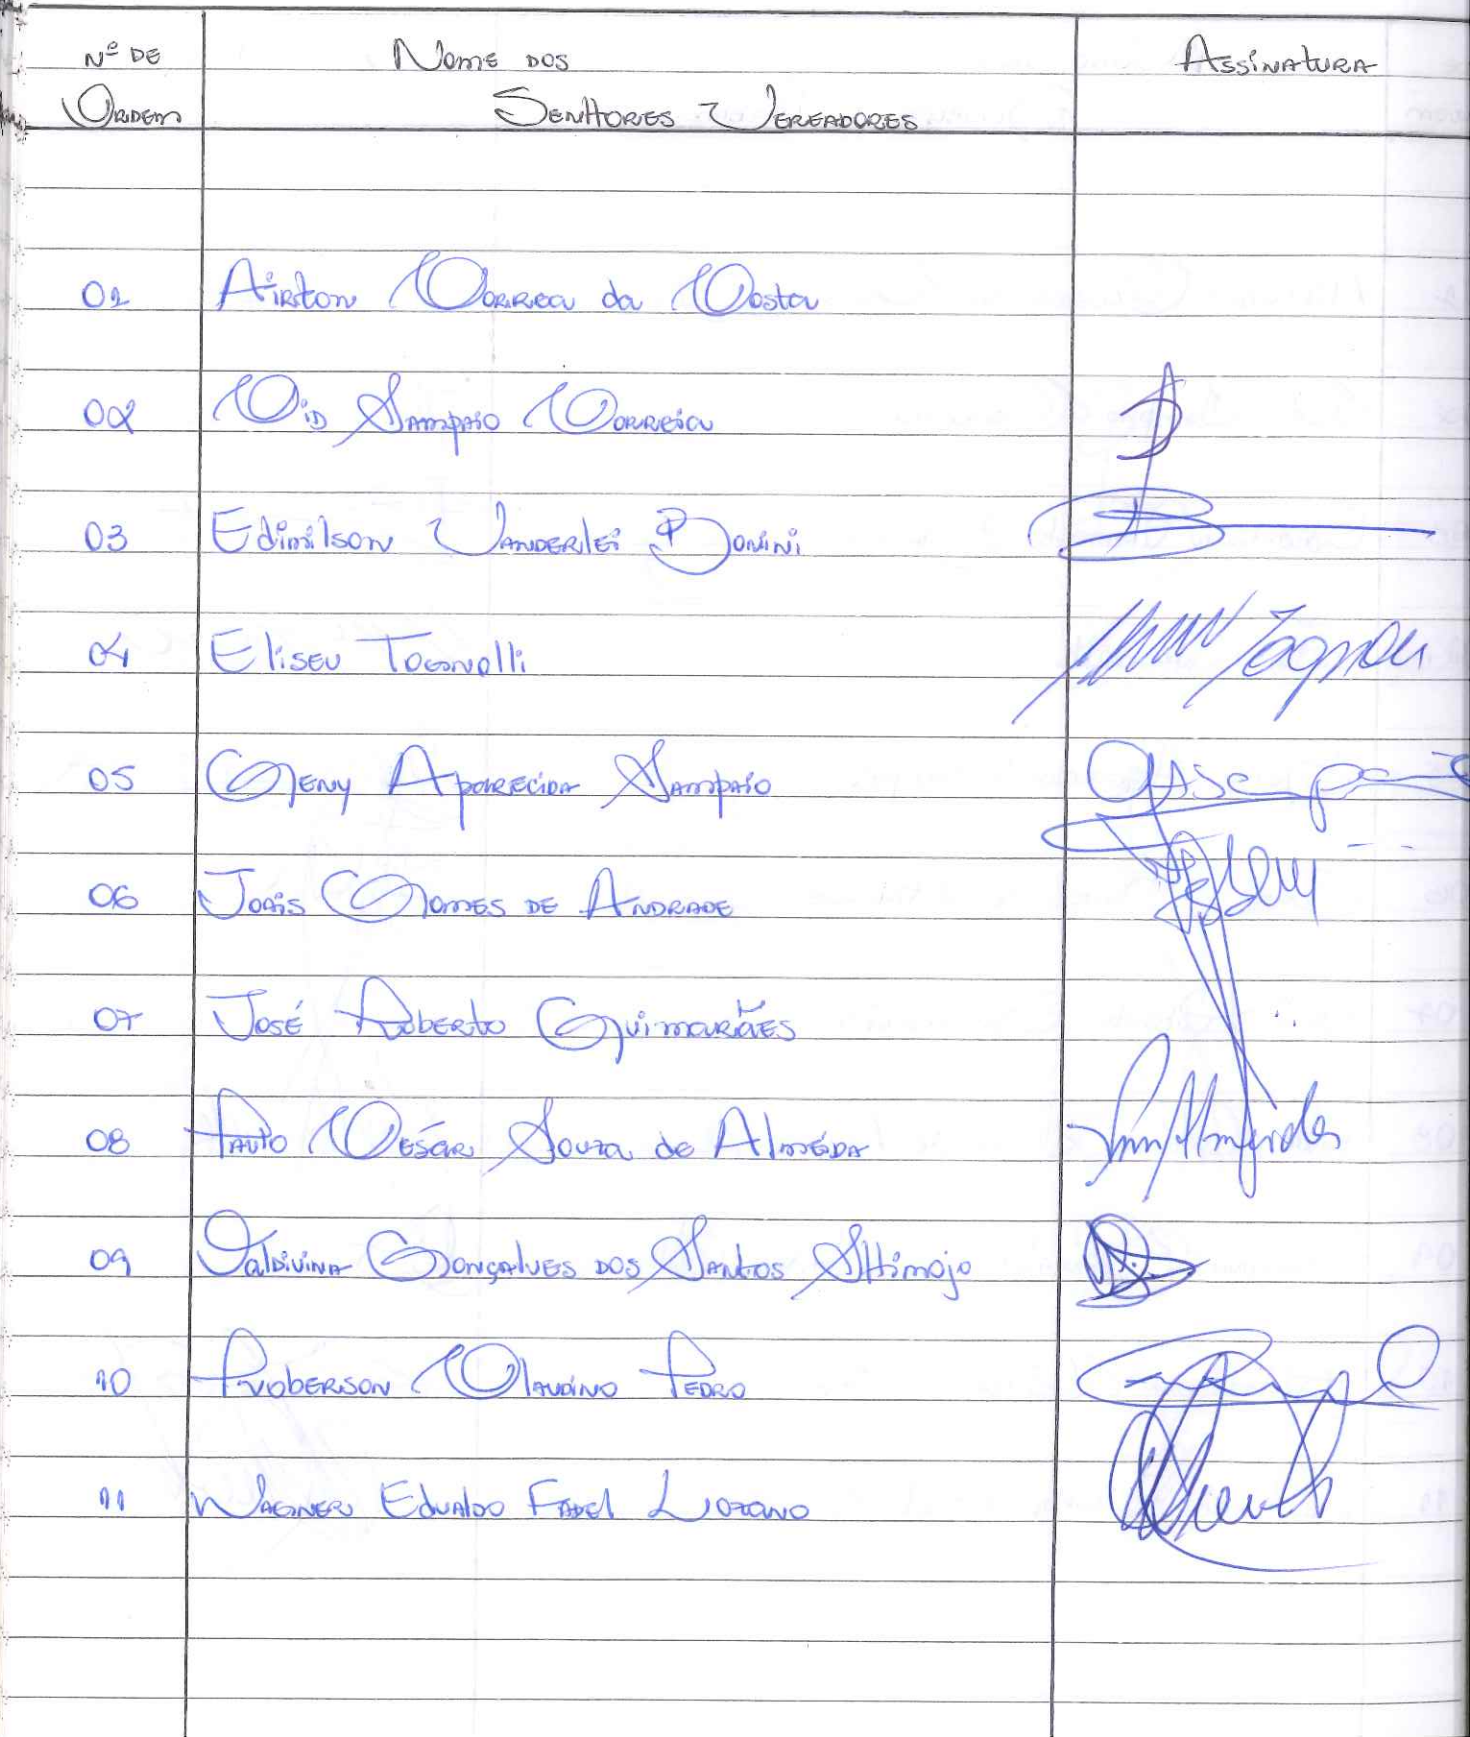 Nº DE Nome DOS Assinatura
Ordem Senhores Vereadores
01 Airton Correa da Costa
02 Cid Sampaio Correia
03 Edimilson Vanderlei Bonini
04 Eliseu Tognolli
05 Geny Aparecida Sampaio
06 Jonis Gomes de Andrade
07 José Roberto Guimarães
08 Paulo César Souza de Almeida
09 Valdivina Gonçalves dos Santos Shimojo
10 Roberson Claudino Pedro
11 Wagner Edualdo Fadel Lozano